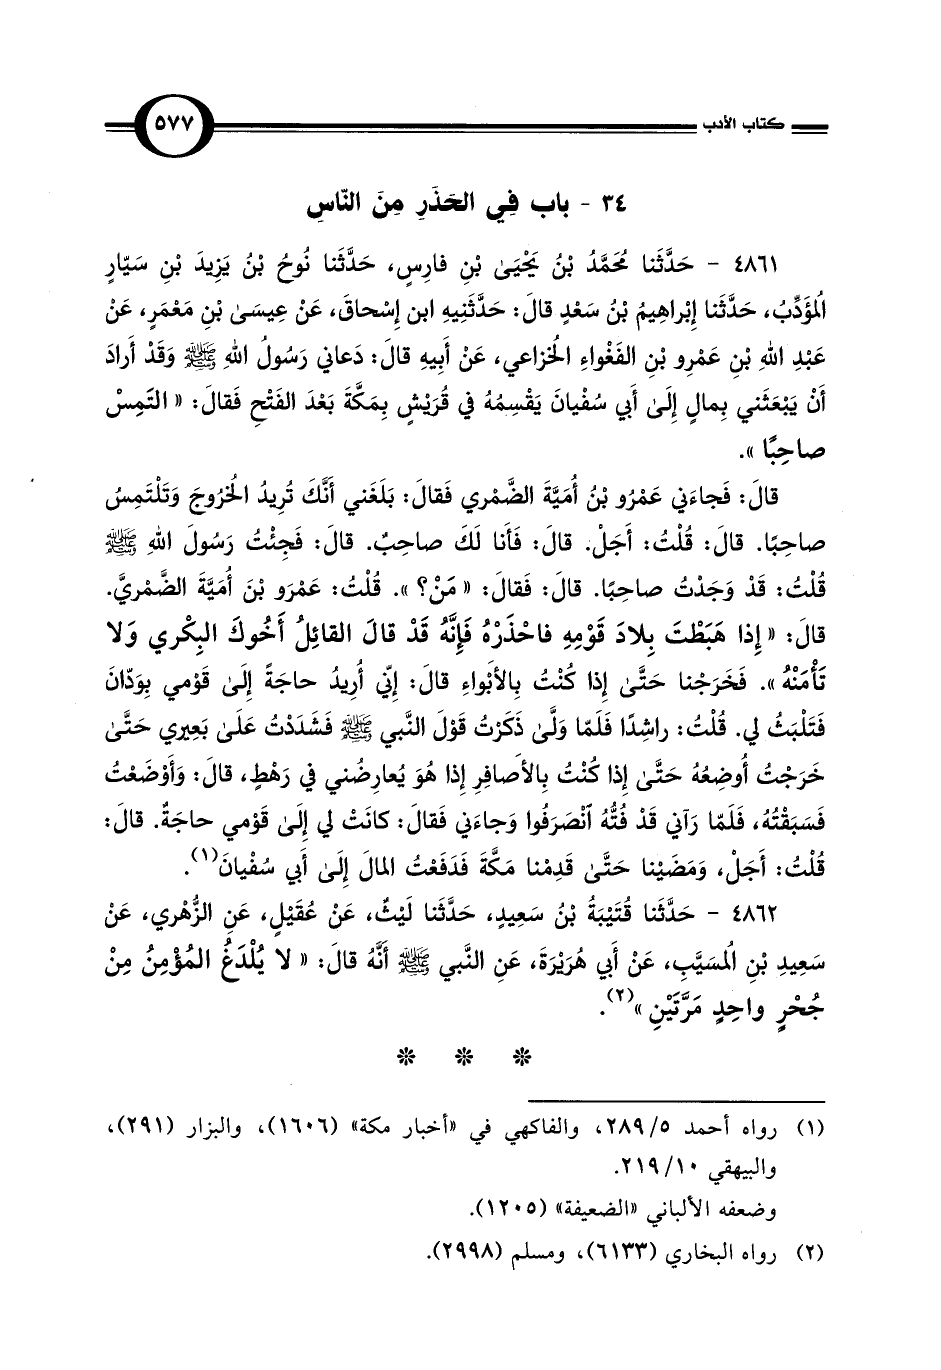 كتاب الأدب ٥٧٧
٣٤ - باب فِي الحَذَرِ مِنَ النّاسِ
٤٨٦١ - حَدَّثَنا مُحَمَّدُ بْنُ يَحْيَىٰ بْنِ فارِسٍ، حَدَّثَنا نُوحُ بْنُ يَزِيدَ بْنِ سَيّارٍ
المُؤَدِّبُ، حَدَّثَنا إِبْراهِيمُ بْنُ سَعْدٍ قالَ: حَدَّثَنِيهِ ابن إِسْحاقَ، عَنْ عِيسَىٰ بْنِ مَعْمَرٍ، عَنْ
عَبْدِ اللهِ بْنِ عَمْرِو بْنِ الفَغْواءِ الخُزاعي، عَنْ أَبِيهِ قالَ: دَعاني رَسُولُ اللهِ ﷺ وَقَدْ أَرادَ
أَنْ يَبْعَثَني بِمالٍ إِلَىٰ أَبي سُفْيانَ يَقْسِمُهُ في قُرَيْشٍ بِمَكَّةَ بَعْدَ الفَتْحِ فَقالَ: « التَمِسْ
صاحِبًا ».
قالَ: فَجاءَني عَمْرُو بْنُ أُمَيَّةَ الضَّمْري فَقالَ: بَلَغَني أَنَّكَ تُرِيدُ الخُرُوجَ وَتَلْتَمِسُ
صاحِبًا. قالَ: قُلْتُ: أَجَلْ. قالَ: فَأَنا لَكَ صاحِبٌ. قالَ: فَجِئْتُ رَسُولَ اللهِ ﷺ
قُلْتُ: قَدْ وَجَدْتُ صاحِبًا. قالَ: فَقالَ: « مَنْ؟ ». قُلْتُ: عَمْرَو بْنَ أُمَيَّةَ الضَّمْريَّ.
قالَ: « إِذا هَبَطْتَ بِلادَ قَوْمِهِ فاحْذَرْهُ فَإِنَّهُ قَدْ قالَ القائِلُ أَخُوكَ البِكْري وَلا
تَأْمَنْهُ ». فَخَرَجْنا حَتَّىٰ إِذا كُنْتُ بِالأَبْواءِ قالَ: إِنّي أُرِيدُ حاجَةً إِلَىٰ قَوْمي بِوَدّانَ
فَتَلْبَثُ لي. قُلْتُ: راشِدًا فَلَمّا وَلَّىٰ ذَكَرْتُ قَوْلَ النَّبي ﷺ فَشَدَدْتُ عَلَىٰ بَعِيري حَتَّىٰ
خَرَجْتُ أُوضِعُهُ حَتَّىٰ إِذا كُنْتُ بِالأَصافِرِ إِذا هُوَ يُعارِضُني في رَهْطٍ، قالَ: وَأَوْضَعْتُ
فَسَبَقْتُهُ، فَلَمّا رَآني قَدْ فُتُّهُ ٱنْصَرَفُوا وَجاءَني فَقالَ: كانَتْ لي إِلَىٰ قَوْمي حاجَةٌ. قالَ:
قُلْتُ: أَجَلْ، وَمَضَيْنا حَتَّىٰ قَدِمْنا مَكَّةَ فَدَفَعْتُ المالَ إِلَىٰ أَبي سُفْيانَ(١).
٤٨٦٢ - حَدَّثَنا قُتَيْبَةُ بْنُ سَعِيدٍ، حَدَّثَنا لَيْثٌ، عَنْ عُقَيْلٍ، عَنِ الزُّهْري، عَنْ
سَعِيدِ بْنِ المُسَيَّبِ، عَنْ أَبي هُرَيْرَةَ، عَنِ النَّبي ﷺ أَنَّهُ قالَ: « لا يُلْدَغُ المُؤْمِنُ مِنْ
جُحْرٍ واحِدٍ مَرَّتَيْنِ »(٢).
* * *
(١) رواه أحمد ٥/ ٢٨٩، والفاكهي في «أخبار مكة» (١٦٠٦)، والبزار (٢٩١)،
والبيهقي ١٠/ ٢١٩.
وضعفه الألباني «الضعيفة» (١٢٠٥).
(٢) رواه البخاري (٦١٣٣)، ومسلم (٢٩٩٨).